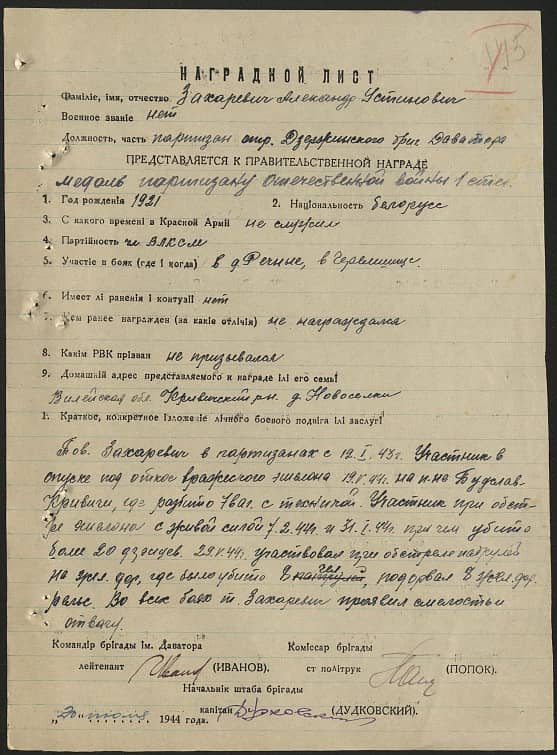 115
НАГРАДНОЙ ЛИСТ
Фамілiе, імя, отчество Захаревич Александр Устинович
Военное званіе нет
Должность, часть партизан отр. Дзержинского бриг. Даватора
ПРЕДСТАВЛЯЕТСЯ К ПРАВИТЕЛЬСТВЕННОЙ НАГРАДЕ
медаль партизану Отечественной войны 1 степ.
1. Год рожденія 1921 2. Національность белорусс
3. С какого времені в Красной Армії не служил
4. Партійность чл. ВЛКСМ
5. Участіе в боях (где і когда) в д. Речные, в Черемшице.
6. Імеет лі раненія і контузії нет
7. Чем ранее награжден (за какіе отлічія) не награждался
8. Какім РВК прізван не призывался
9. Домашній адрес представляемого к награде ілі его семьі
Вилейская обл. Кривичский р-н. д. Новоселки
1. Краткое, конкретное ізложеніе лічного боевого подвіга ілі заслугі
Тов. Захаревич в партизанах с 12.I.43г. Участник в
спуске под откос вражеского эшелона 19.V.44г. на п-не Будслав-
Кривичи, где разбито 7 ваг. с техникой. Участник при обст-
ре эшелона с живой силой 7.2.44г и 31.I.44г. при чем убито
более 20 . 29.V.44г. участвовал при обстреле патрулей
на жел. дор, где было убито 2 чел., подорвал 2 жел. дор.
рельс. Во всех боях т. Захаревич проявил смелость и
отвагу.
Командір брігады ім. Даватора
лейтенант (ИВАНОВ).
Коміссар брігады
ст політрук (ПОПОК).
Начальник штаба брігады
капітан (ДУДКОВСКИЙ).
„20" июля 1944 года.